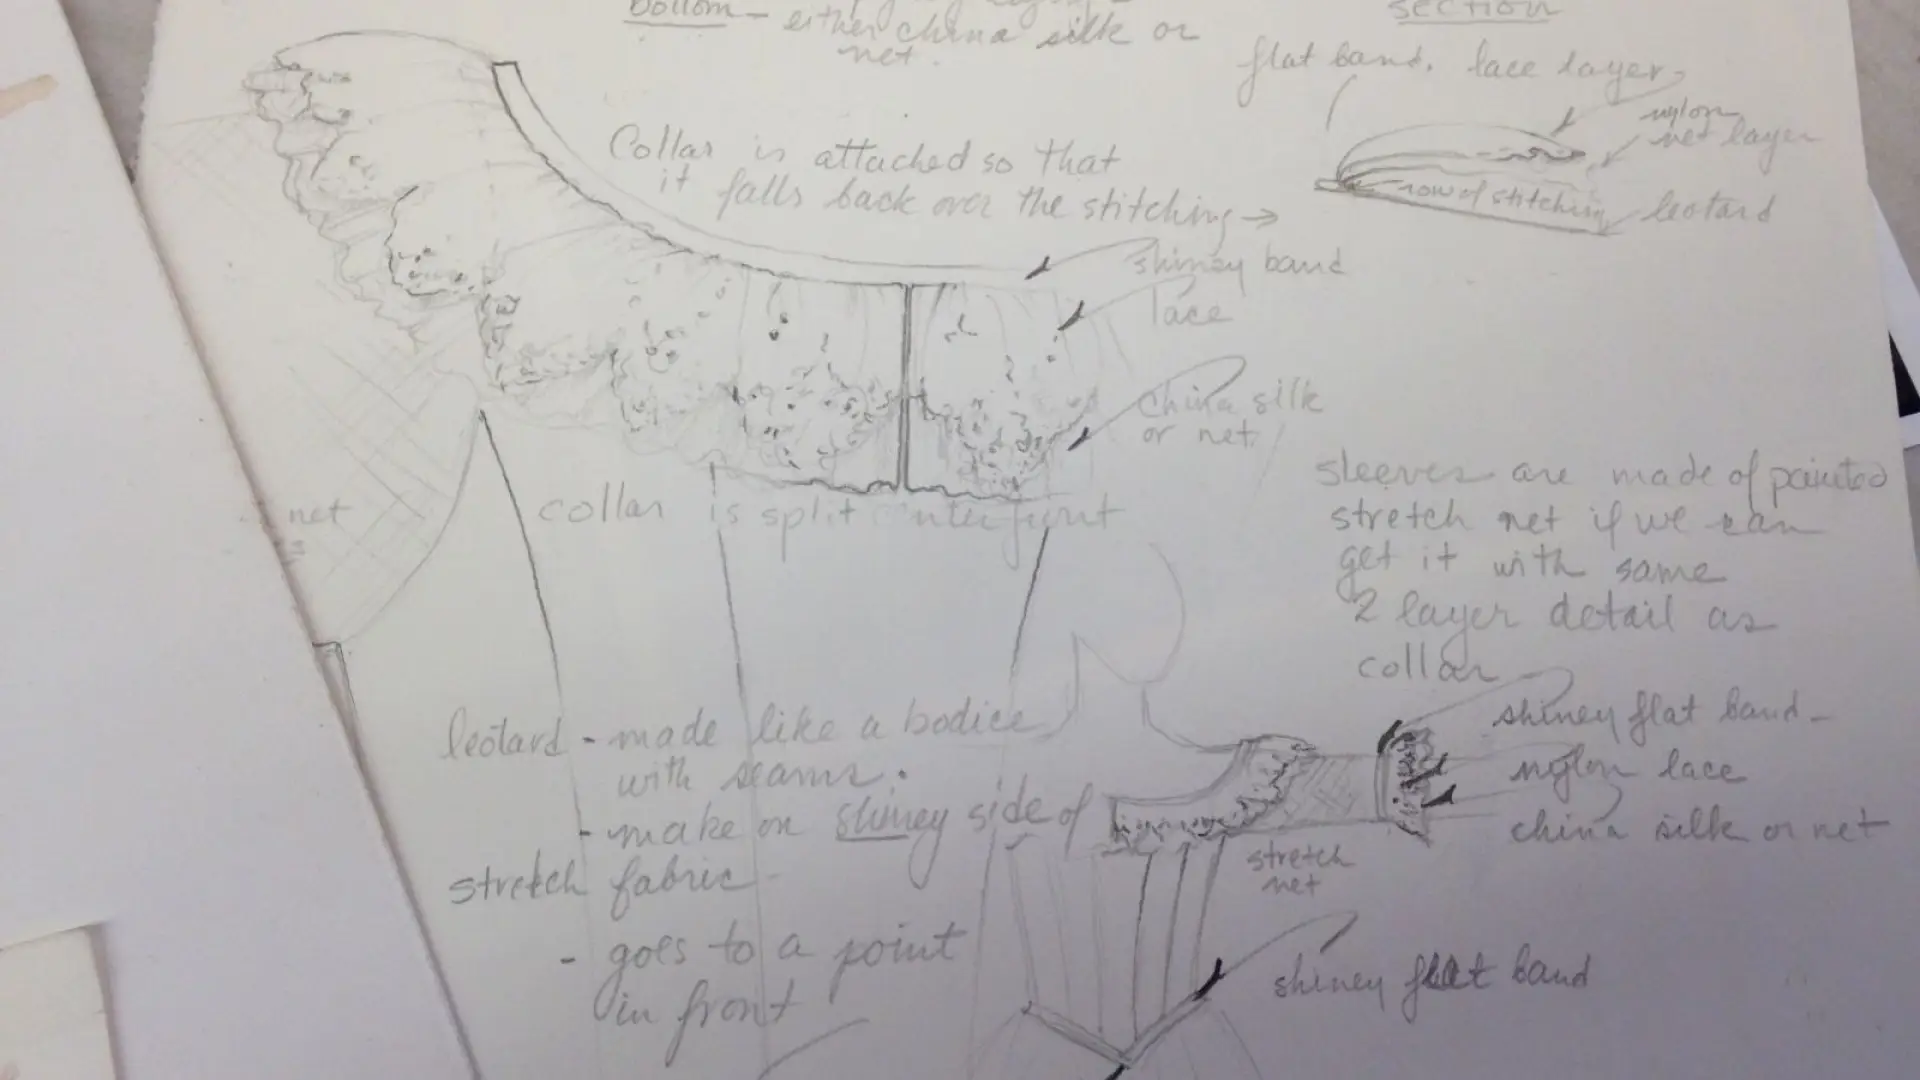 bottom - either china silk or
net.
section
flat band. lace layer
nylon
net layer
row of stitching
leotard
Collar is attached so that
it falls back over the stitching →
shiney band
lace
china silk
or net.
net
collar is split center front
sleeves are made of painted
stretch net if we can
get it with same
2 layer detail as
collar
leotard - made like a bodice
with seams.
- make on shiney side of
stretch fabric -
- goes to a point
in front
shiney flat band -
nylon lace
china silk or net
stretch
net
shiney flat band